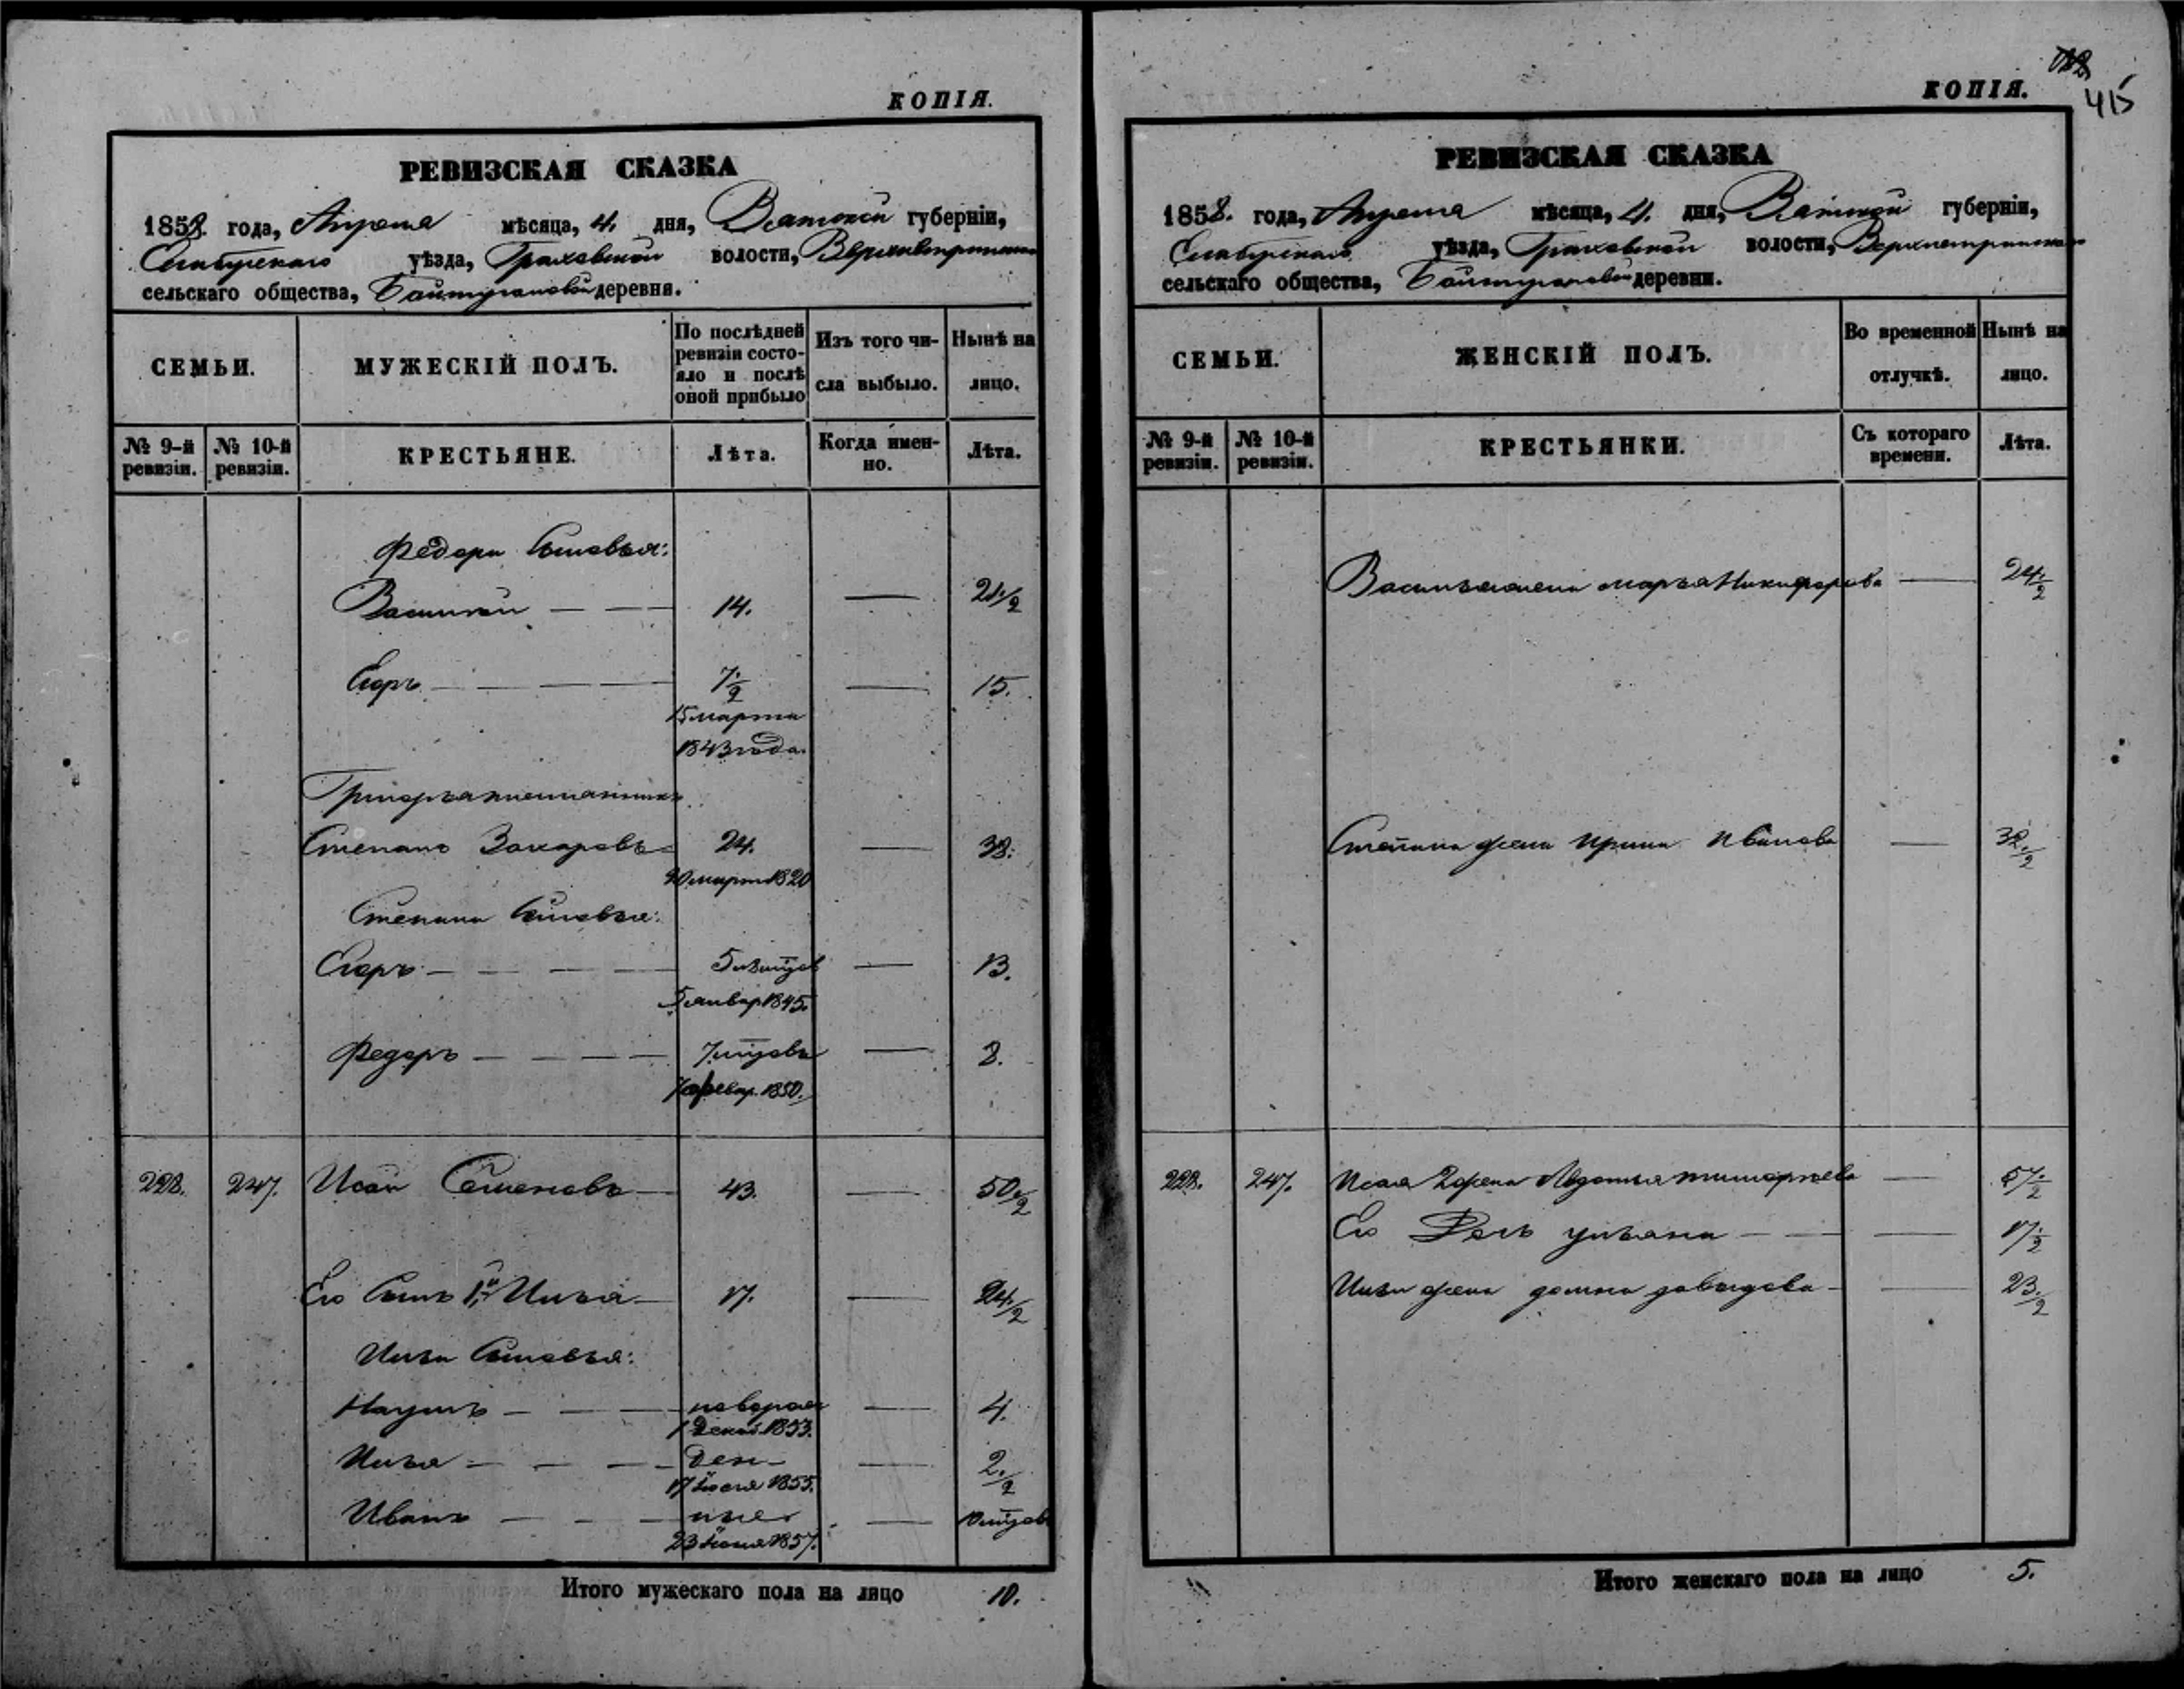 КОПІЯ.
РЕВИЗСКАЯ СКАЗКА
1858 года, Апреля мѣсяца, 4. дня, Вятской губерніи,
Елабужскаго уѣзда, Граховской волости,
сельскаго общества, Баитугановой деревня.
СЕМЬИ.
МУЖЕСКІЙ ПОЛЪ.
По послѣдней
ревизіи состо-
яло и послѣ
оной прибыло
Изъ того чи-
сла выбыло.
Нынѣ на
лицо.
№ 9-й
ревизіи.
№ 10-й
ревизіи.
КРЕСТЬЯНЕ.
Лѣта.
Когда имен-
но.
Лѣта.
Федора Сыновья:
Василей — — — 14. — 21 1/2
Егоръ — — — 7 1/2 — 15.
15 марта
1843 года.
Григорья племянникъ
Степанъ Захаровъ — 24. — 38.
20 март 1820
Степана Сыновья:
Егоръ — — — — 13.
5 январ 1845.
Федоръ — — — — 8.
7 феврар. 1850.
228. 247. Исай Семеновъ — 43. — 50 1/2
Его Сынъ 1й Илья — 17. — 24 1/2
Ильи Сыновья:
Наумъ — — — новорож — 4.
1 Декаб. 1853.
Илья — — — ден — 2 1/2
17 1855.
Иванъ — — — ные — 10 мцов
23 1857.
Итого мужескаго пола на лицо 10.
КОПІЯ.
415
РЕВИЗСКАЯ СКАЗКА
1858. года, Апреля мѣсяца, 4. дня, Вятской губерніи,
Елабужскаго уѣзда, Граховской волости,
сельскаго общества, Баитугановой деревни.
СЕМЬИ.
ЖЕНСКІЙ ПОЛЪ.
Во временной
отлучкѣ.
Нынѣ на
лицо.
№ 9-й
ревизіи.
№ 10-й
ревизіи.
КРЕСТЬЯНКИ.
Съ котораго
времени.
Лѣта.
Васильяжена марья Никифорова — 24 1/2
Степана жена Ирина Иванова — 32 1/2
228. 247. Исая 2 жена Авдотья тимофѣева — 57 1/2
Его Дочь ульяна — — 17 1/2
Ильи жена домна давыдова — 23 1/2
Итого женскаго пола на лицо 5.